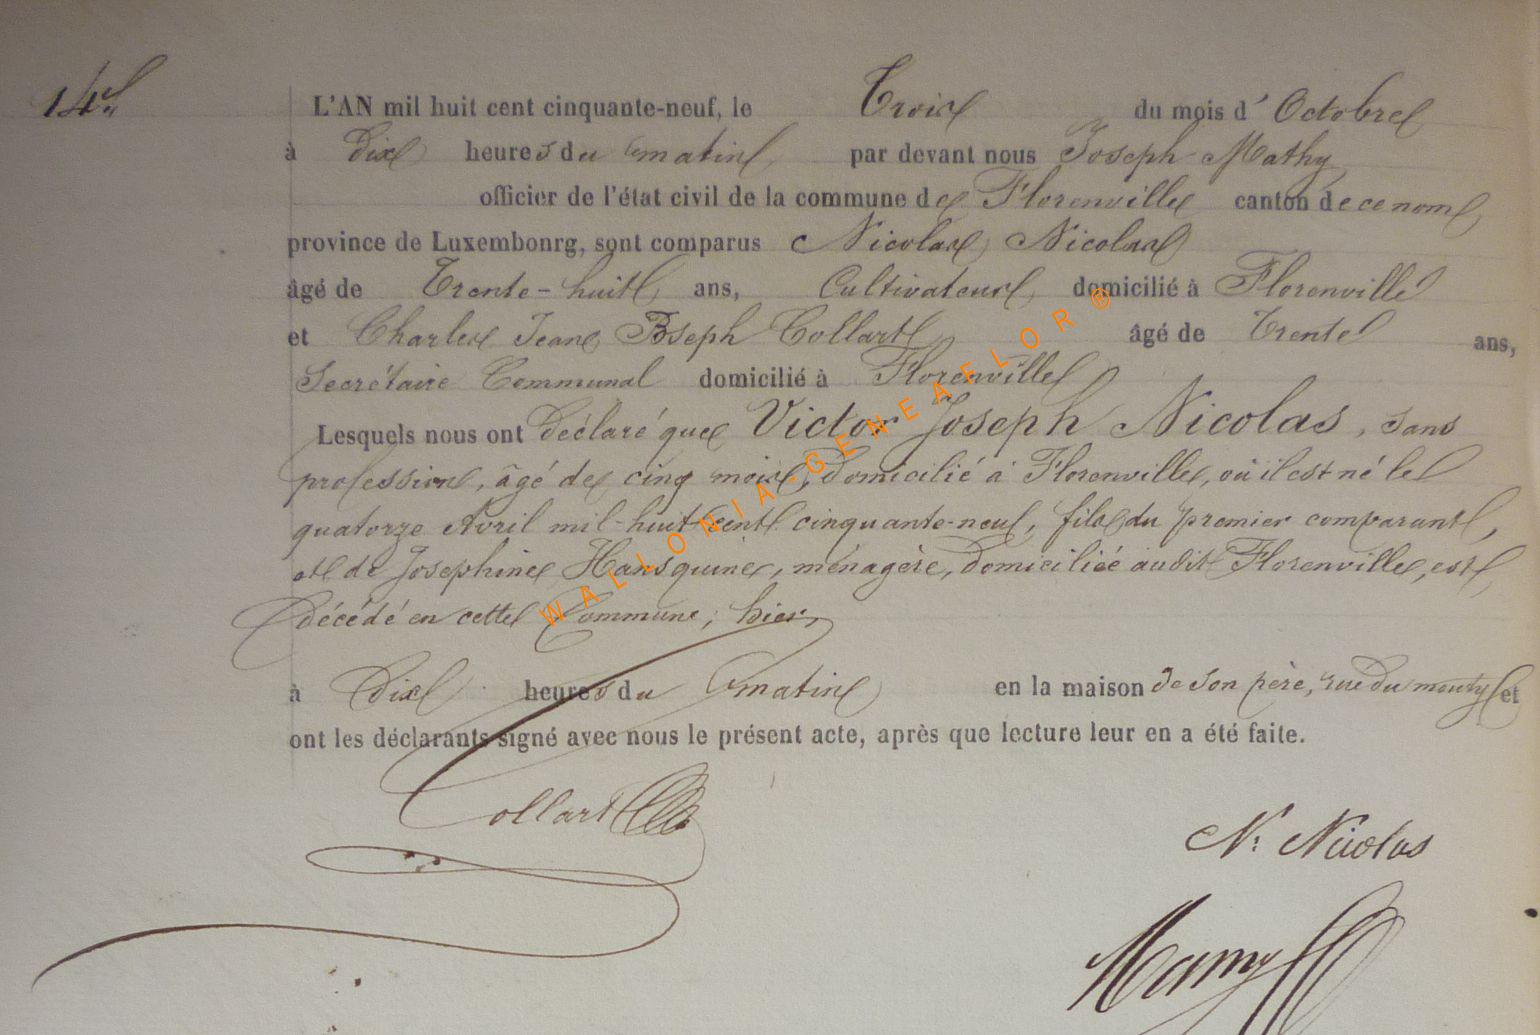 14
L'AN mil huit cent cinquante-neuf, le Trois du mois d'Octobre
à Dix heures du matin par devant nous Joseph Mathy
officier de l'état civil de la commune de Florenville canton de ce nom
province de Luxembonrg, sont comparus Nicolas Nicolas
âgé de Trente-huit ans, Cultivateur domicilié à Florenville
et Charles Jean Joseph Collart âgé de Trente ans,
Secrétaire Communal domicilié à Florenville
Lesquels nous ont déclaré que Victor Joseph Nicolas, sans
profession, âgé de cinq mois, domicilié à Florenville, où il est né le
quatorze Avril mil-huit-cent cinquante-neuf, fils du premier comparant,
et de Josephine Hansquine, ménagère, domiciliée audit Florenville, est
décédé en cette Commune, hier,
à Dix heures du matin en la maison de son père, rue du et
ont les déclarants signé avec nous le présent acte, après que lecture leur en a été faite.
Collart
N. Nicolas
WALLONIA-GENEAFLOR ®